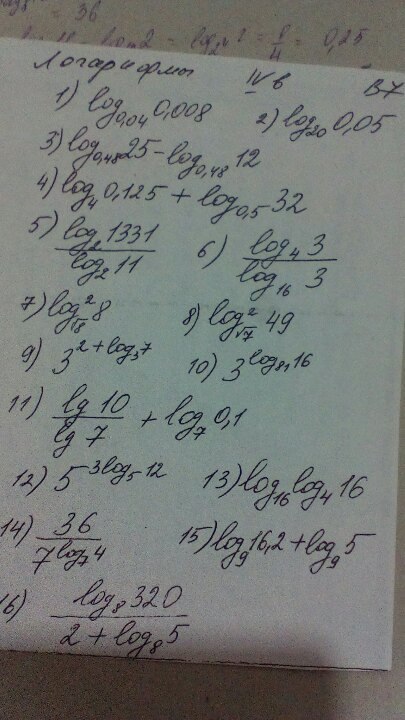 = 36
= 0,25
Логарифмы IV в В7
1) log₀,₀₄ 0,008 2) log₂₀ 0,05
3) log₀,₄₈ 25 - log₀,₄₈ 12
4) log₄ 0,125 + log₀,₅ 32
5) log₂ 1331 / log₂ 11 6) log₄ 3 / log₁₆ 3
7) log²_√8 8 8) log²_√7 49
9) 3^(2+log₃7) 10) 3^(log₈₁16)
11) lg 10 / lg 7 + log₇ 0,1
12) 5^(3log₅12) 13) log₁₆ log₄ 16
14) 36 / 7^(log₇4) 15) log₉ 16,2 + log₉ 5
16) log₈ 320 / 2 + log₈ 5